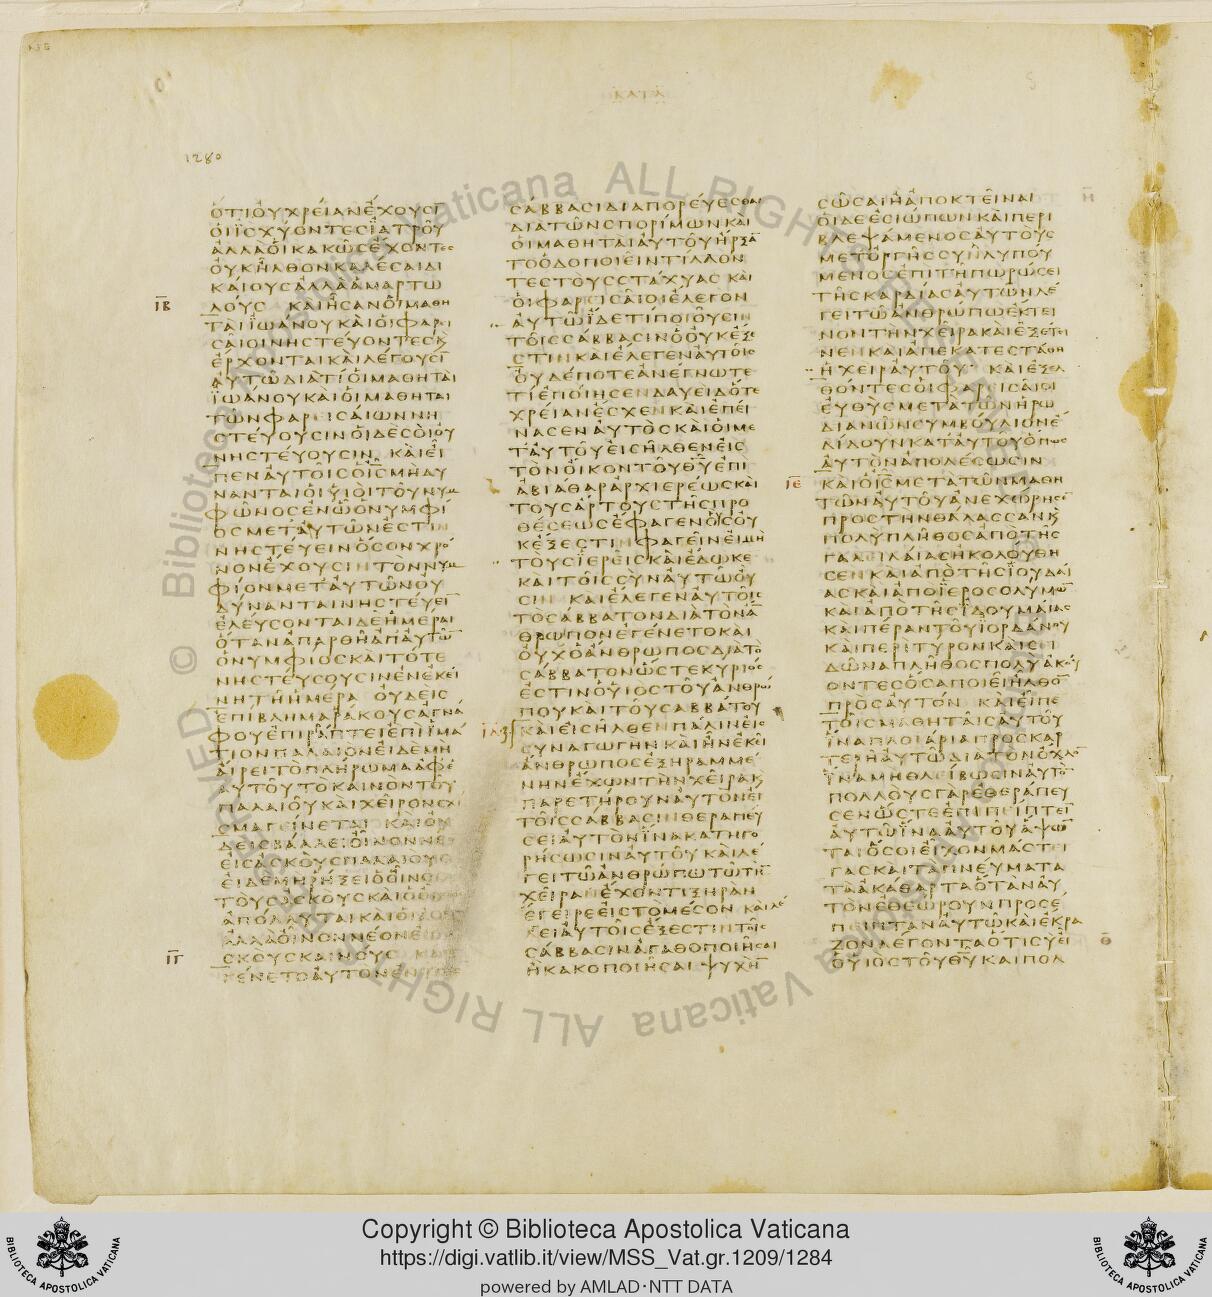 1280
ΚΑΤΑ
ΟΤΙΟΥΧΡΕΙΑΝΕΧΟΥΣΙ
ΟΙΙΣΧΥΟΝΤΕΣΙΑΤΡΟΥ
ΑΛΛΑΟΙΚΑΚΩΣΕΧΟΝΤΕΣ
ΟΥΚΗΛΘΟΝΚΑΛΕΣΑΙΔΙ
ΚΑΙΟΥΣΑΛΛΑΑΜΑΡΤΩ
ΙΒ ΛΟΥΣ ΚΑΙΗΣΑΝΟΙΜΑΘΗ
ΤΑΙΙΩΑΝΟΥΚΑΙΟΙΦΑΡΙ
ΣΑΙΟΙΝΗΣΤΕΥΟΝΤΕΣΚ
ΕΡΧΟΝΤΑΙΚΑΙΛΕΓΟΥΣΙ
ΑΥΤΩΔΙΑΤΙΟΙΜΑΘΗΤΑΙ
ΙΩΑΝΟΥΚΑΙΟΙΜΑΘΗΤΑΙ
ΤΩΝΦΑΡΕΙΣΑΙΩΝΝΗ
ΣΤΕΥΟΥΣΙΝΟΙΔΕΣΟΙΟΥ
ΝΗΣΤΕΥΟΥΣΙΝ ΚΑΙΕΙ
ΠΕΝΑΥΤΟΙΣΟΙΣΜΗΔΥ
ΝΑΝΤΑΙΟΙΥΙΟΙΤΟΥΝΥΜ
ΦΩΝΟΣΕΝΩΟΝΥΜΦΙ
ΟΣΜΕΤΑΥΤΩΝΕΣΤΙΝ
ΝΗΣΤΕΥΕΙΝΟΣΟΝΧΡΟ
ΝΟΝΕΧΟΥΣΙΝΤΟΝΝΥΜ
ΦΙΟΝΜΕΤΑΥΤΩΝΟΥ
ΔΥΝΑΝΤΑΙΝΗΣΤΕΥΕΙ
ΕΛΕΥΣΟΝΤΑΙΔΕΗΜΕΡΑΙ
ΟΤΑΝΑΠΑΡΘΗΑΠΑΥΤΩ
ΟΝΥΜΦΙΟΣΚΑΙΤΟΤΕ
ΝΗΣΤΕΥΣΟΥΣΙΝΕΝΕΚΕΙ
ΝΗΤΗΗΜΕΡΑ ΟΥΔΕΙΣ
ΕΠΙΒΛΗΜΑΡΑΚΟΥΣΑΓΝΑ
ΦΟΥΕΠΙΡΑΠΤΕΙΕΠΙΙΜΑ
ΤΙΟΝΠΑΛΑΙΟΝΕΙΔΕΜΗ
ΑΙΡΕΙΤΟΠΛΗΡΩΜΑΑΦΕ
ΑΥΤΟΥΤΟΚΑΙΝΟΝΤΟΥ
ΠΑΛΑΙΟΥΚΑΙΧΕΙΡΟΝΣΧΙ
ΣΜΑΓΕΙΝΕΤΑΙ ΚΑΙΟΥ
ΔΕΙΣΒΑΛΛΕΙΟΙΝΟΝΝΕ
ΕΙΣΑΣΚΟΥΣΠΑΛΑΙΟΥΣ
ΕΙΔΕΜΗΡΗΞΕΙΟΟΙΝΟΣ
ΤΟΥΣΑΣΚΟΥΣΚΑΙΟΟΙ
ΑΠΟΛΛΥΤΑΙΚΑΙΟΙΑΣΚΟΙ
ΑΛΛΑΟΙΝΟΝΝΕΟΝΕΙΣΑ
ΙΓ ΣΚΟΥΣΚΑΙΝΟΥΣ ΚΑΙΕ
ΓΕΝΕΤΟΑΥΤΟΝΕΝ
ΣΑΒΒΑΣΙΔΙΑΠΟΡΕΥΕΣΘΑΙ
ΔΙΑΤΩΝΣΠΟΡΙΜΩΝΚΑΙ
ΟΙΜΑΘΗΤΑΙΑΥΤΟΥΗΡΞΑ
ΤΟΟΔΟΠΟΙΕΙΝΤΙΛΛΟΝ
ΤΕΣΤΟΥΣΣΤΑΧΥΑΣ ΚΑΙ
ΟΙΦΑΡΕΙΣΑΙΟΙΕΛΕΓΟΝ
ΑΥΤΩΙΔΕΤΙΠΟΙΟΥΣΙΝ
ΤΟΙΣΣΑΒΒΑΣΙΝΟΟΥΚΕΞΕ
ΣΤΙΝΚΑΙΕΛΕΓΕΝΑΥΤΟΙΣ
ΟΥΔΕΠΟΤΕΑΝΕΓΝΩΤΕ
ΤΙΕΠΟΙΗΣΕΝΔΑΥΕΙΔΟΤΕ
ΧΡΕΙΑΝΕΣΧΕΝΚΑΙΕΠΕΙ
ΝΑΣΕΝΑΥΤΟΣΚΑΙΟΙΜΕ
ΤΑΥΤΟΥΕΙΣΗΛΘΕΝΕΙΣ
ΤΟΝΟΙΚΟΝΤΟΥΘΥΕΠΙ
ΑΒΙΑΘΑΡΑΡΧΙΕΡΕΩΣΚΑΙ
ΤΟΥΣΑΡΤΟΥΣΤΗΣΠΡΟ
ΘΕΣΕΩΣΕΦΑΓΕΝΟΥΣΟΥ
ΚΕΞΕΣΤΙΝΦΑΓΕΙΝΕΙΜΗ
ΤΟΥΣΙΕΡΕΙΣΚΑΙΕΔΩΚΕ
ΚΑΙΤΟΙΣΣΥΝΑΥΤΩΟΥ
ΣΙΝ ΚΑΙΕΛΕΓΕΝΑΥΤΟΙΣ
ΤΟΣΑΒΒΑΤΟΝΔΙΑΤΟΝΑ
ΘΡΩΠΟΝΕΓΕΝΕΤΟΚΑΙ
ΟΥΧΟΑΝΘΡΩΠΟΣΔΙΑΤΟ
ΣΑΒΒΑΤΟΝΩΣΤΕΚΥΡΙΟΣ
ΕΣΤΙΝΟΥΙΟΣΤΟΥΑΝΘΡΩ
ΠΟΥΚΑΙΤΟΥΣΑΒΒΑΤΟΥ
ΙΔ ΚΑΙΕΙΣΗΛΘΕΝΠΑΛΙΝΕΙΣ
ΣΥΝΑΓΩΓΗΝΚΑΙΗΝΕΚΕΙ
ΑΝΘΡΩΠΟΣΕΞΗΡΑΜΜΕ
ΝΗΝΕΧΩΝΤΗΝΧΕΙΡΑΚ
ΠΑΡΕΤΗΡΟΥΝΑΥΤΟΝΕΙ
ΤΟΙΣΣΑΒΒΑΣΙΝΘΕΡΑΠΕΥ
ΣΕΙΑΥΤΟΝΙΝΑΚΑΤΗΓΟ
ΡΗΣΩΣΙΝΑΥΤΟΥ ΚΑΙΛΕ
ΓΕΙΤΩΑΝΘΡΩΠΩΤΩΤΗ
ΧΕΙΡΑΕΧΟΝΤΙΞΗΡΑΝ
ΕΓΕΙΡΕΕΙΣΤΟΜΕΣΟΝ ΚΑΙΛΕ
ΓΕΙΑΥΤΟΙΣΕΞΕΣΤΙΝΤΟΙΣ
ΣΑΒΒΑΣΙΝΑΓΑΘΟΠΟΙΗΣΑΙ
ΗΚΑΚΟΠΟΙΗΣΑΙ ΨΥΧΗ
ΣΩΣΑΙΗΑΠΟΚΤΕΙΝΑΙ
ΟΙΔΕΕΣΙΩΠΩΝΚΑΙΠΕΡΙ
ΒΛΕΨΑΜΕΝΟΣΑΥΤΟΥΣ
ΜΕΤΟΡΓΗΣΣΥΛΛΥΠΟΥ
ΜΕΝΟΣΕΠΙΤΗΠΩΡΩΣΕΙ
ΤΗΣΚΑΡΔΙΑΣΑΥΤΩΝΛΕ
ΓΕΙΤΩΑΝΘΡΩΠΩΕΚΤΕΙ
ΝΟΝΤΗΝΧΕΙΡΑΚΑΙΕΞΕΤΕΙ
ΝΕΝΚΑΙΑΠΕΚΑΤΕΣΤΑΘΗ
ΗΧΕΙΡΑΥΤΟΥ ΚΑΙΕΞΕΛ
ΘΟΝΤΕΣΟΙΦΑΡΕΙΣΑΙΟΙ
ΕΥΘΥΣΜΕΤΑΤΩΝΗΡΩ
ΔΙΑΝΩΝΣΥΜΒΟΥΛΙΟΝΕ
ΔΙΔΟΥΝΚΑΤΑΥΤΟΥΟΠΩΣ
ΑΥΤΟΝΑΠΟΛΕΣΩΣΙΝ
ΙΕ ΚΑΙΟΙΣΜΕΤΑΤΩΝΜΑΘΗ
ΤΩΝΑΥΤΟΥΑΝΕΧΩΡΗΣΕ
ΠΡΟΣΤΗΝΘΑΛΑΣΣΑΝΚ
ΠΟΛΥΠΛΗΘΟΣΑΠΟΤΗΣ
ΓΑΛΕΙΛΑΙΑΣΗΚΟΛΟΥΘΗ
ΣΕΝΚΑΙΑΠΟΤΗΣΙΟΥΔΑΙ
ΑΣΚΑΙΑΠΟΙΕΡΟΣΟΛΥΜΩ
ΚΑΙΑΠΟΤΗΣΙΔΟΥΜΑΙΑΣ
ΚΑΙΠΕΡΑΝΤΟΥΙΟΡΔΑΝΟΥ
ΚΑΙΠΕΡΙΤΥΡΟΝΚΑΙΣΕΙ
ΔΩΝΑΠΛΗΘΟΣΠΟΛΥΑΚΟΥ
ΟΝΤΕΣΟΣΑΠΟΙΕΙΗΛΘΟ
ΠΡΟΣΑΥΤΟΝ ΚΑΙΕΙΠΕ
ΤΟΙΣΜΑΘΗΤΑΙΣΑΥΤΟΥ
ΙΝΑΠΛΟΙΑΡΙΑΠΡΟΣΚΑΡ
ΤΕΡΗΑΥΤΩΔΙΑΤΟΝΟΧΛΟ
ΙΝΑΜΗΘΛΕΙΒΩΣΙΝΑΥΤΟ
ΠΟΛΛΟΥΣΓΑΡΕΘΕΡΑΠΕΥ
ΣΕΝΩΣΤΕΕΠΙΠΕΙΠΤΕΙ
ΑΥΤΩΙΝΑΑΥΤΟΥΑΨΩ
ΤΑΙΟΣΟΙΕΙΧΟΝΜΑΣΤΕΙ
ΓΑΣΚΑΙΤΑΠΝΕΥΜΑΤΑ
ΤΑΑΚΑΘΑΡΤΑΟΤΑΝΑΥ
ΤΟΝΕΘΕΩΡΟΥΝΠΡΟΣΕ
ΠΕΙΠΤΑΝΑΥΤΩΚΑΙΕΚΡΑ
ΖΟΝΛΕΓΟΝΤΑΟΤΙΣΥΕΙ
ΟΥΙΟΣΤΟΥΘΥΚΑΙΠΟΛ
© Biblioteca Apostolica Vaticana ALL RIGHTS RESERVED
Copyright © Biblioteca Apostolica Vaticana
https://digi.vatlib.it/view/MSS_Vat.gr.1209/1284
powered by AMLAD·NTT DATA
BIBLIOTECA APOSTOLICA VATICANA
BIBLIOTECA APOSTOLICA VATICANA